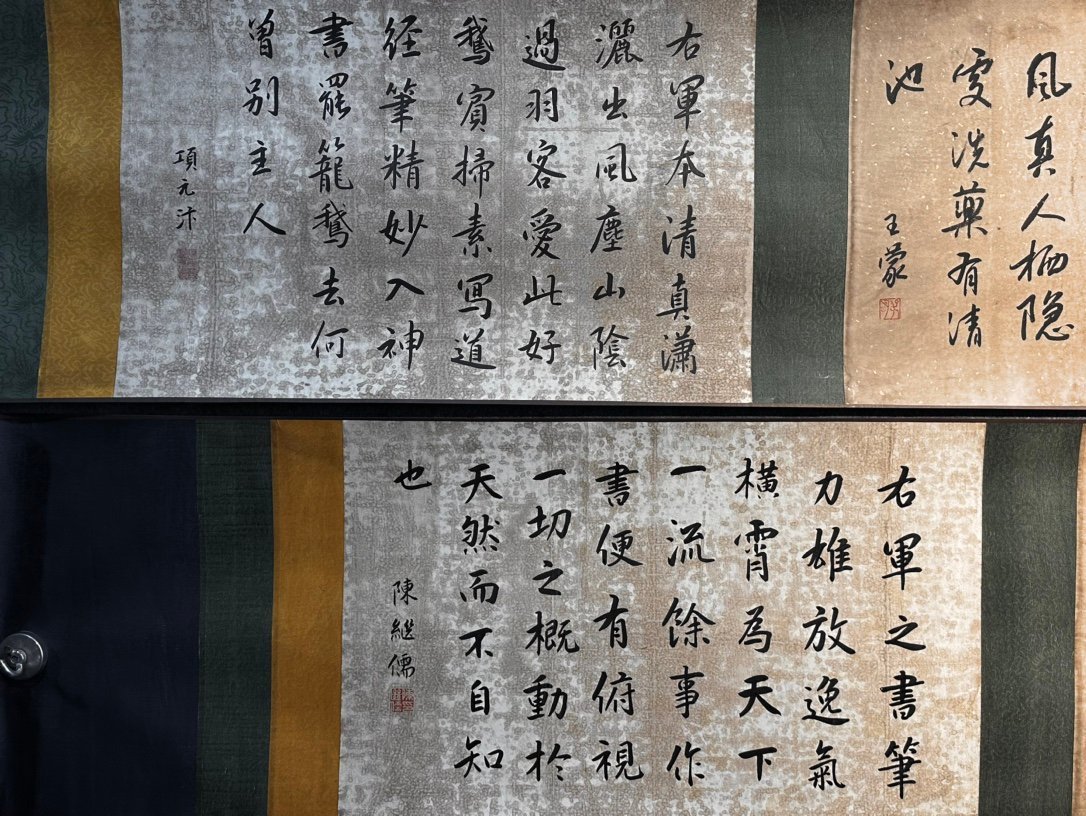 風真人栖隐
雯洗藥有清
池
王蒙
右軍本清真瀟
灑出風塵山陰
過羽客愛此好
鵞賓掃素寫道
经筆精妙入神
書罷籠鵞去何
曾别主人
項元汴
右軍之書筆
力雄放逸氣
横霄為天下
一流餘事作
書便有俯視
一切之概動於
天然而不自知
也
陳継儒